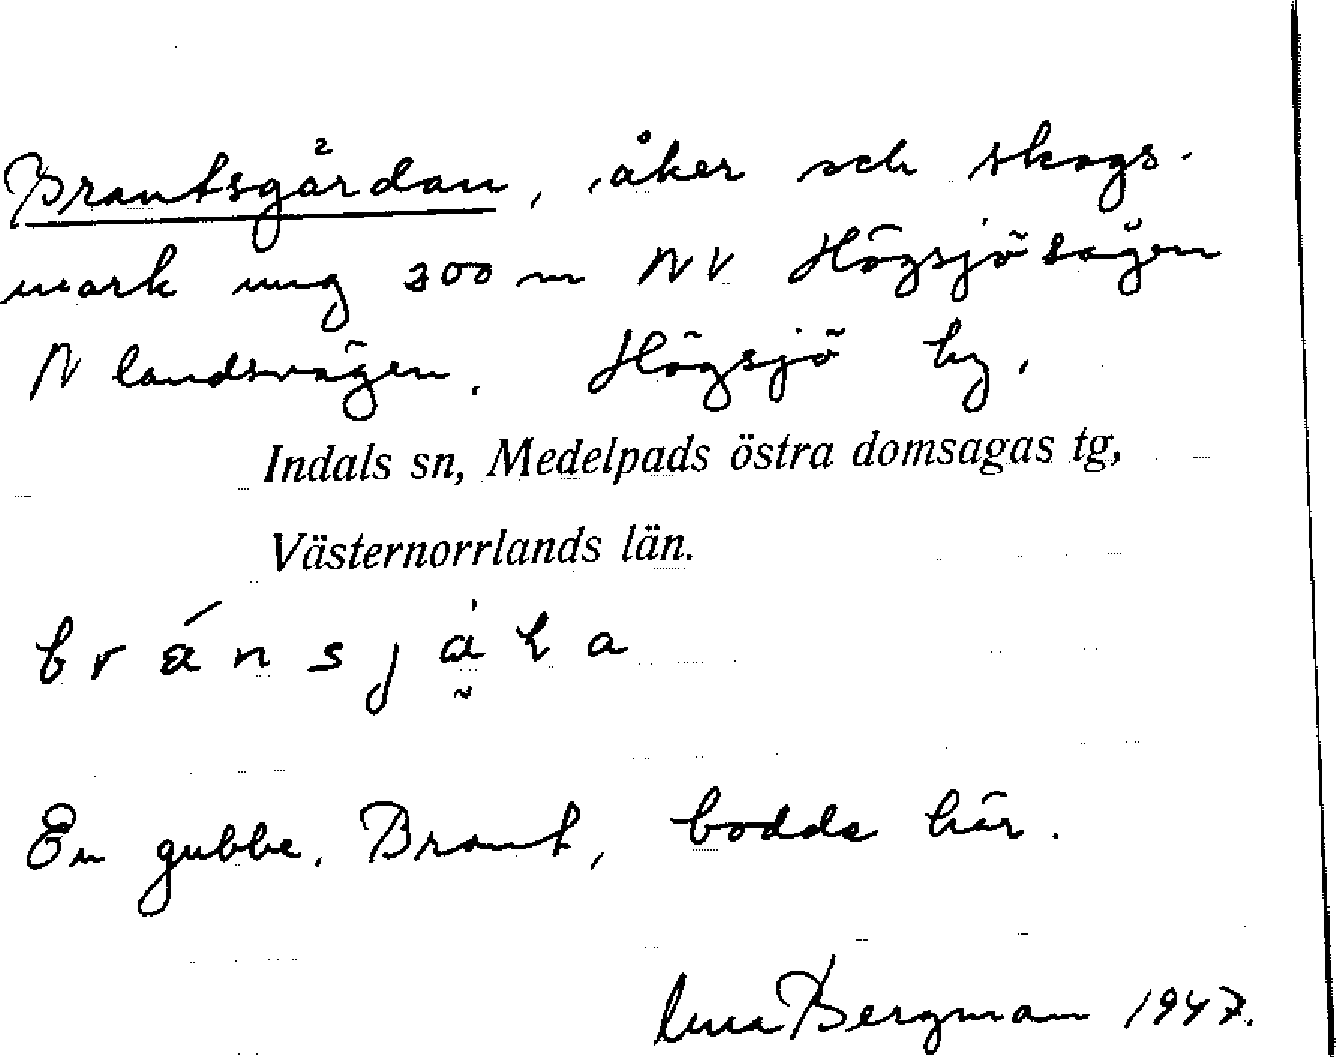 Brantsgårdan, åker och skogs-
mark ung 300 m NV Högsjösågen
N landsvägen. Högsjö by.
Indals sn, Medelpads östra domsagas tg,
Västernorrlands län.
En gubbe, Brant, bodde här.
Bergman 1947.